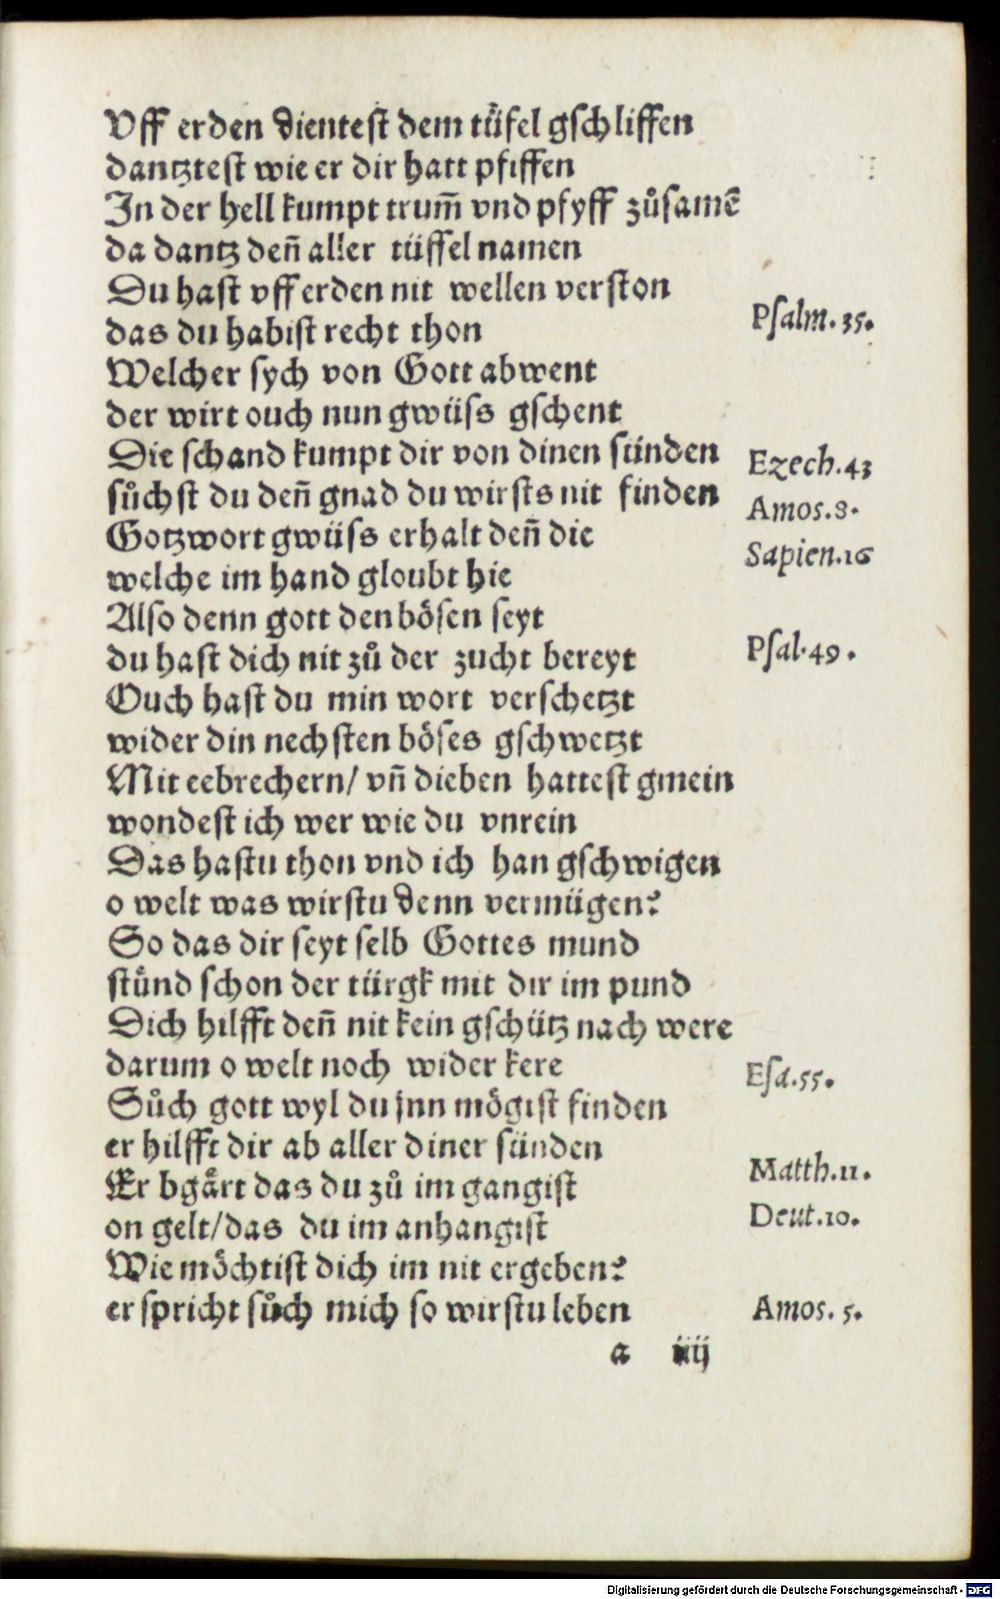 Vff erden dientest dem tüfel gschliffen
dantztest wie er dir hatt pfiffen
In der hell kumpt trum̄ vnd pfyff zůsamē
da dantz den̄ aller tüffel namen
Du hast vff erden nit wellen verston
das du habist recht thon
Psalm. 35.
Welcher sych von Gott abwent
der wirt ouch nun gwüss gschent
Die schand kumpt dir von dinen sünden
Ezech. 43
sůchst du den̄ gnad du wirsts nit finden
Amos. 8.
Gotzwort gwüss erhalt den̄ die
Sapien. 16
welche im hand gloubt hie
Also denn gott den bösen seyt
du hast dich nit zů der zucht bereyt
Psal. 49.
Ouch hast du min wort verschetzt
wider din nechsten böses gschwetzt
Mit eebrechern/ vn̄ dieben hattest gmein
wondest ich wer wie du vnrein
Das hastu thon vnd ich han gschwigen
o welt was wirstu denn vermügen?
So das dir seyt selb Gottes mund
stünd schon der türgk mit dir im pund
Dich hilfft den̄ nit kein gschütz nach were
darum o welt noch wider kere
Esa. 55.
Sůch gott wyl du jnn mögist finden
er hilfft dir ab aller diner sünden
Er bgårt das du zů im gangist
Matth. 11.
on gelt/das du im anhangist
Deut. 10.
Wie möchtist dich im nit ergeben?
er spricht sůch mich so wirstu leben
Amos. 5.
a iiij
Digitalisierung gefördert durch die Deutsche Forschungsgemeinschaft - DFG